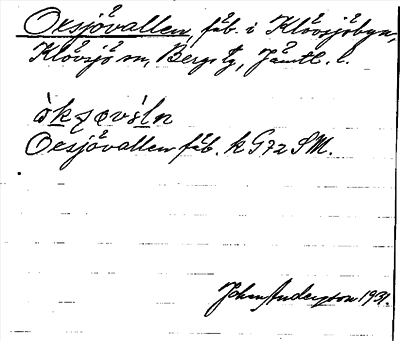 Oxsjövallen, fäb. i Klövsjöbyn,
Klövsjö sn, Bergs tg, Jämtl. l.
Oxsjövallen fäb. k G72 SM.
John Anderson 1931.